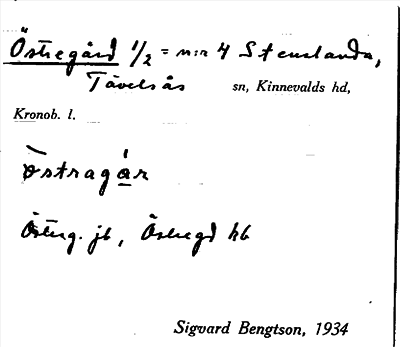 Östregård 1/2 = n:r 4 Stenslanda,
Tävelsås sn, Kinnevalds hd,
Kronob. l.
östragår
Österg. jb, Östregd kb
Sigvard Bengtson, 1934